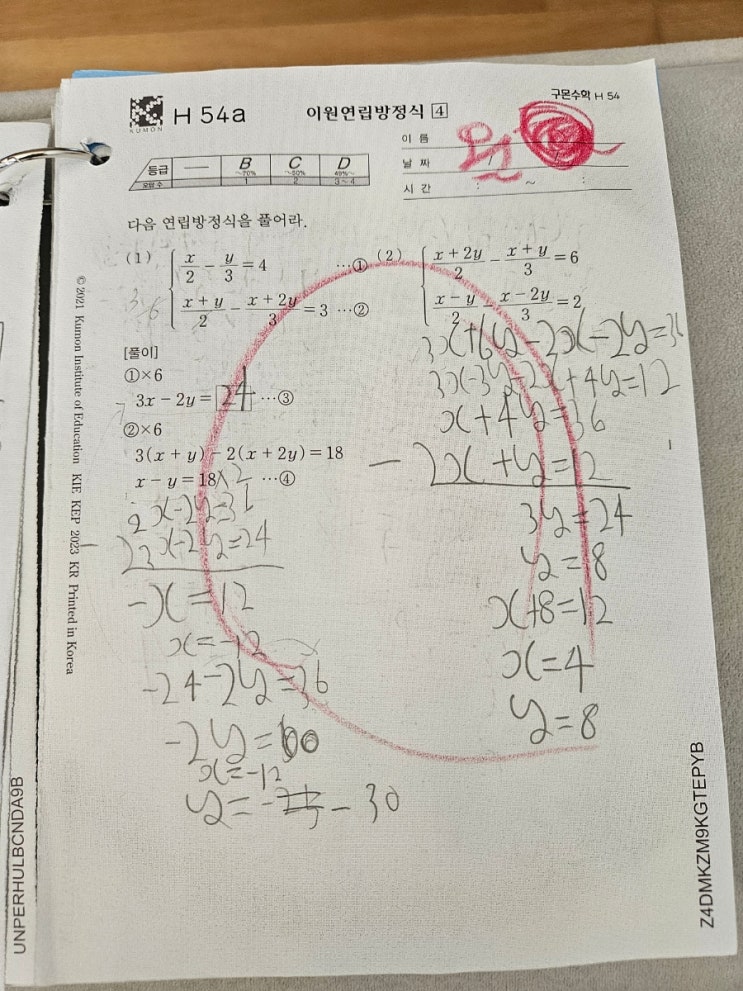 KUMON
H 54a
이원연립방정식 4
구몬수학 H 54
등급 B C D
~70% ~50% 49%~
오답 수 1 2 3~4
이 름
날 짜
시 간 : ~ :
다음 연립방정식을 풀어라.
(1) x/2 - y/3 = 4 …①
(x+y)/2 - (x+2y)/3 = 3 …②
[풀이]
①×6
3x-2y=24 …③
②×6
3(x+y)-2(x+2y)=18
x-y=18×2 …④
2x-2y=36
3x-2y=24
-x=12
x=-12
-24-2y=36
-2y=60
x=-12
y=-30
(2) (x+2y)/2 - (x+y)/3 = 6
(x-y)/2 - (x-2y)/3 = 2
3x+6y-2x-2y=36
3x-3y-2x+4y=12
x+4y=36
x+y=12
3y=24
y=8
x+8=12
x=4
y=8
© 2021 Kumon Institute of Education KIE KEP 2023 KR Printed in Korea
UNPERHULBCNDA9B
Z4DMKZM9KGTEPYB